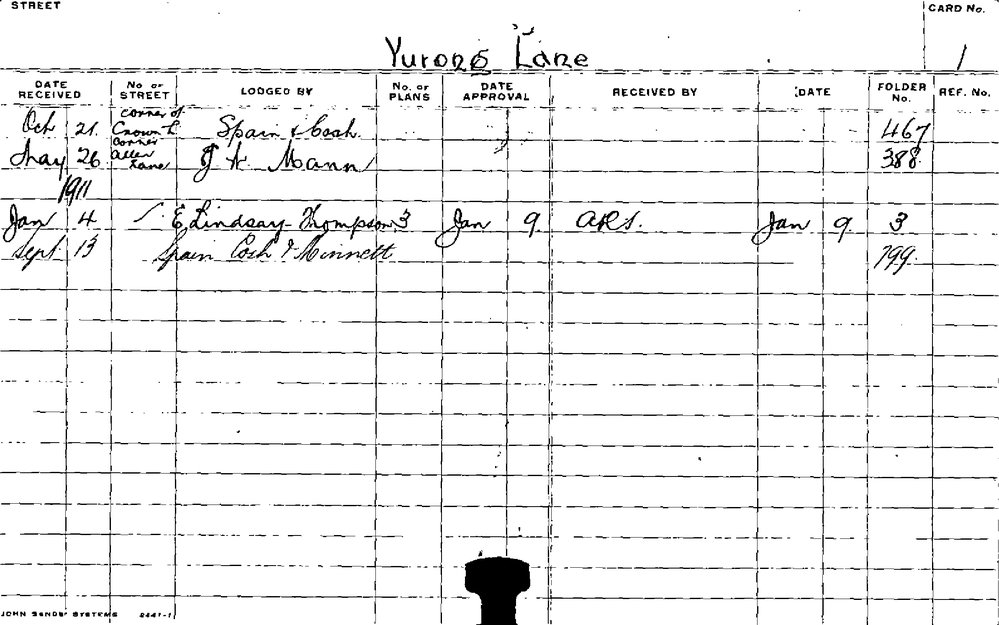 STREET CARD No.
Yurong Lane 1
DATE RECEIVED No. OF STREET LODGED BY No. OF PLANS DATE APPROVAL RECEIVED BY DATE FOLDER No. REF. No.
Oct 21 corner of Crown L Spain & Cosh 467
May 26 corner Allen Lane J A Mann 388
1911
Jan 4 E Lindsay Thompson 3 Jan 9 ARS. Jan 9 3
Sept 13 Spain Cosh & Minnett 199
JOHN SANDS' SYSTEMS 2441-1